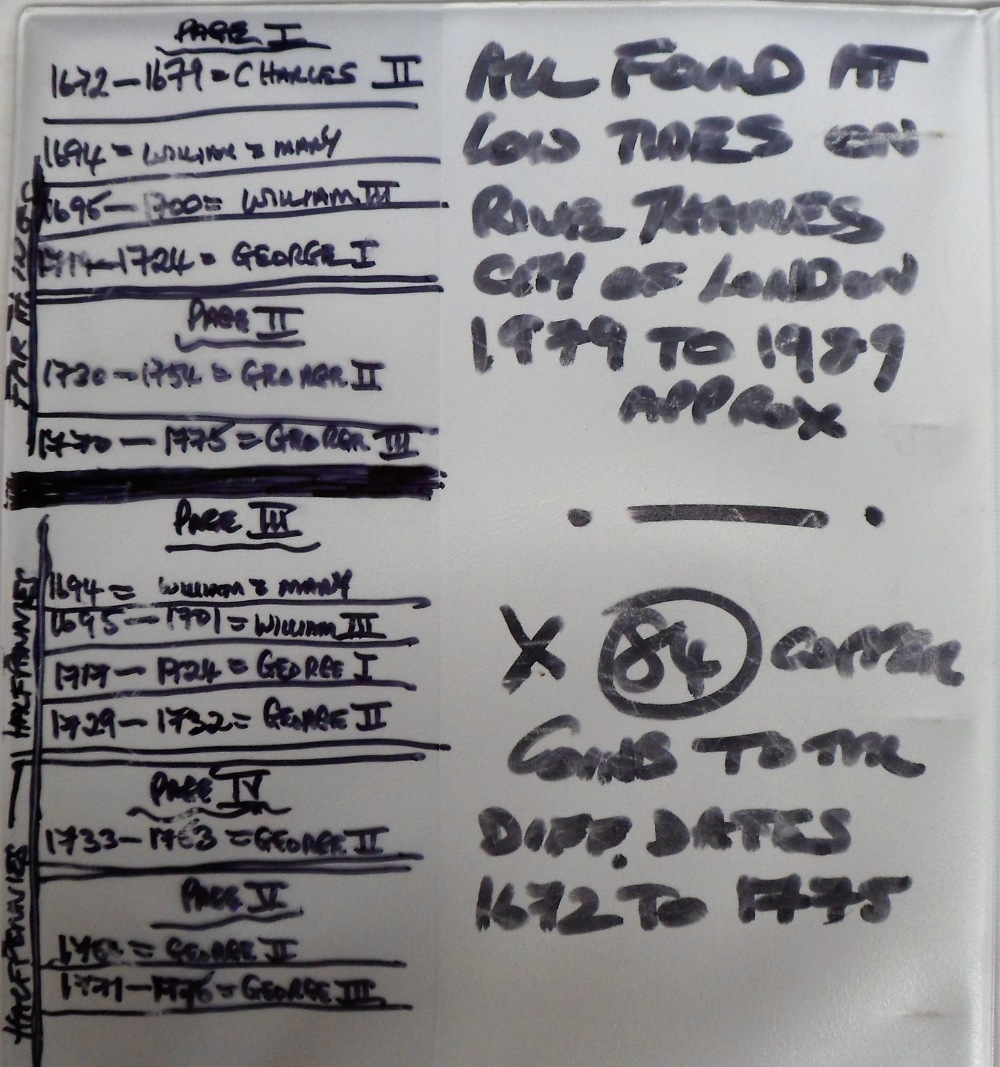 PAGE I
1672-1679 = CHARLES II
1694 = WILLIAM & MARY
1695-1700 = WILLIAM III
-1724 = GEORGE I
FARTHINGS
PAGE II
1730-1754 = GEORGE II
1770-1775 = GEORGE III
PAGE III
1694 = WILLIAM & MARY
1695-1701 = WILLIAM III
1717-1724 = GEORGE I
1729-1732 = GEORGE II
PAGE IV
1733-1753 = GEORGE II
PAGE V
= GEORGE II
1771-1775 = GEORGE III
HALFPENNIES — HALFPENNIES
ALL FOUND AT
LOW TIDES ON
RIVER THAMES
CITY OF LONDON
1979 TO 1989
APPROX
X 84 COPPER
COINS TOTAL
DIFF. DATES
1672 TO 1775